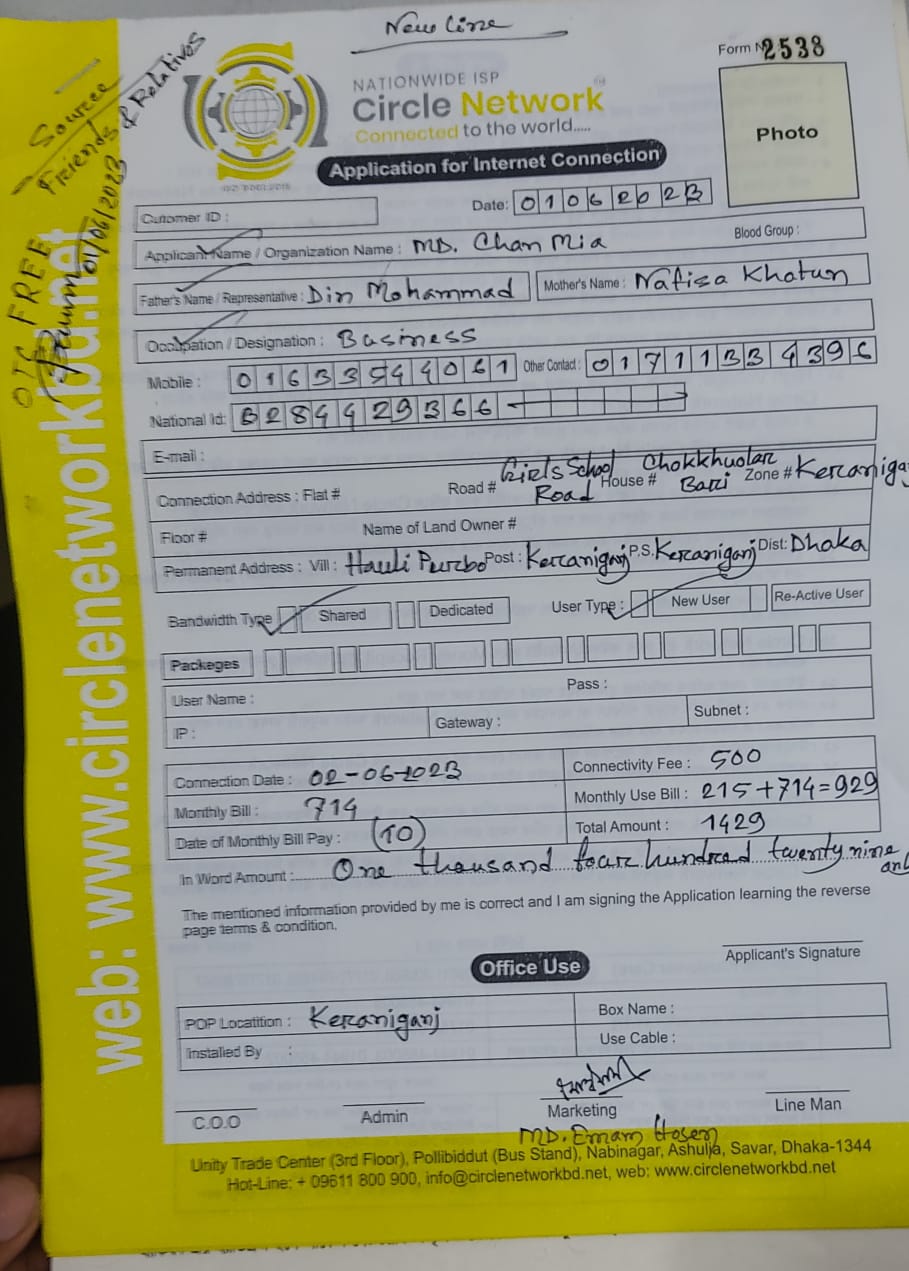 New Line
Form N 2538
Source
Friends & Relatives
OTC FREE
01/06/2023
NATIONWIDE ISP
Circle Network
Connected to the world.....
ISO 9001:2015
Photo
Application for Internet Connection
Cutomer ID :
Date: 01062023
Applicant Name / Organization Name : MD. Chan Mia Blood Group :
Father's Name / Representative : Din Mohammad Mother's Name : Nafisa Khatun
Occupation / Designation : Business
Mobile : 01633544061 Other Contact : 01711334396
National Id: 6284429366
E-mail :
Connection Address : Flat # Road # Girls School Road House # Chokkhuolar Bari Zone # Keraniganj
Floor # Name of Land Owner #
Permanent Address : Vill : Hauli Purbo Post : Keraniganj P.S. Keraniganj Dist: Dhaka
Bandwidth Type Shared Dedicated User Type : New User Re-Active User
Packeges
User Name : Pass :
IP : Gateway : Subnet :
Connection Date : 02-06-2023 Connectivity Fee : 500
Monthly Bill : 714 Monthly Use Bill : 215+714=929
Date of Monthly Bill Pay : (10) Total Amount : 1429
In Word Amount : One thousand four hundred twenty nine only
The mentioned information provided by me is correct and I am signing the Application learning the reverse
page terms & condition.
Applicant's Signature
Office Use
POP Locatition : Keraniganj Box Name :
Installed By : Use Cable :
C.O.O Admin Marketing Line Man
MD. Emam Hosen
Unity Trade Center (3rd Floor), Pollibiddut (Bus Stand), Nabinagar, Ashulia, Savar, Dhaka-1344
Hot-Line: + 09611 800 900, info@circlenetworkbd.net, web: www.circlenetworkbd.net
web: www.circlenetworkbd.net